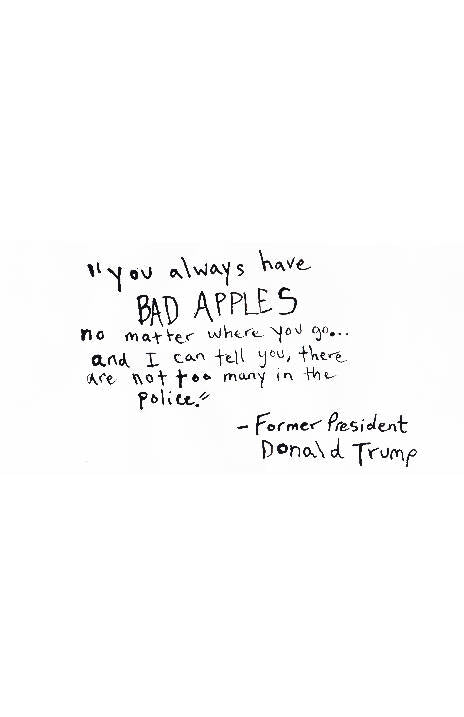 "you always have
BAD APPLES
no matter where you go...
and I can tell you, there
are not too many in the
police."
- Former President
Donald Trump